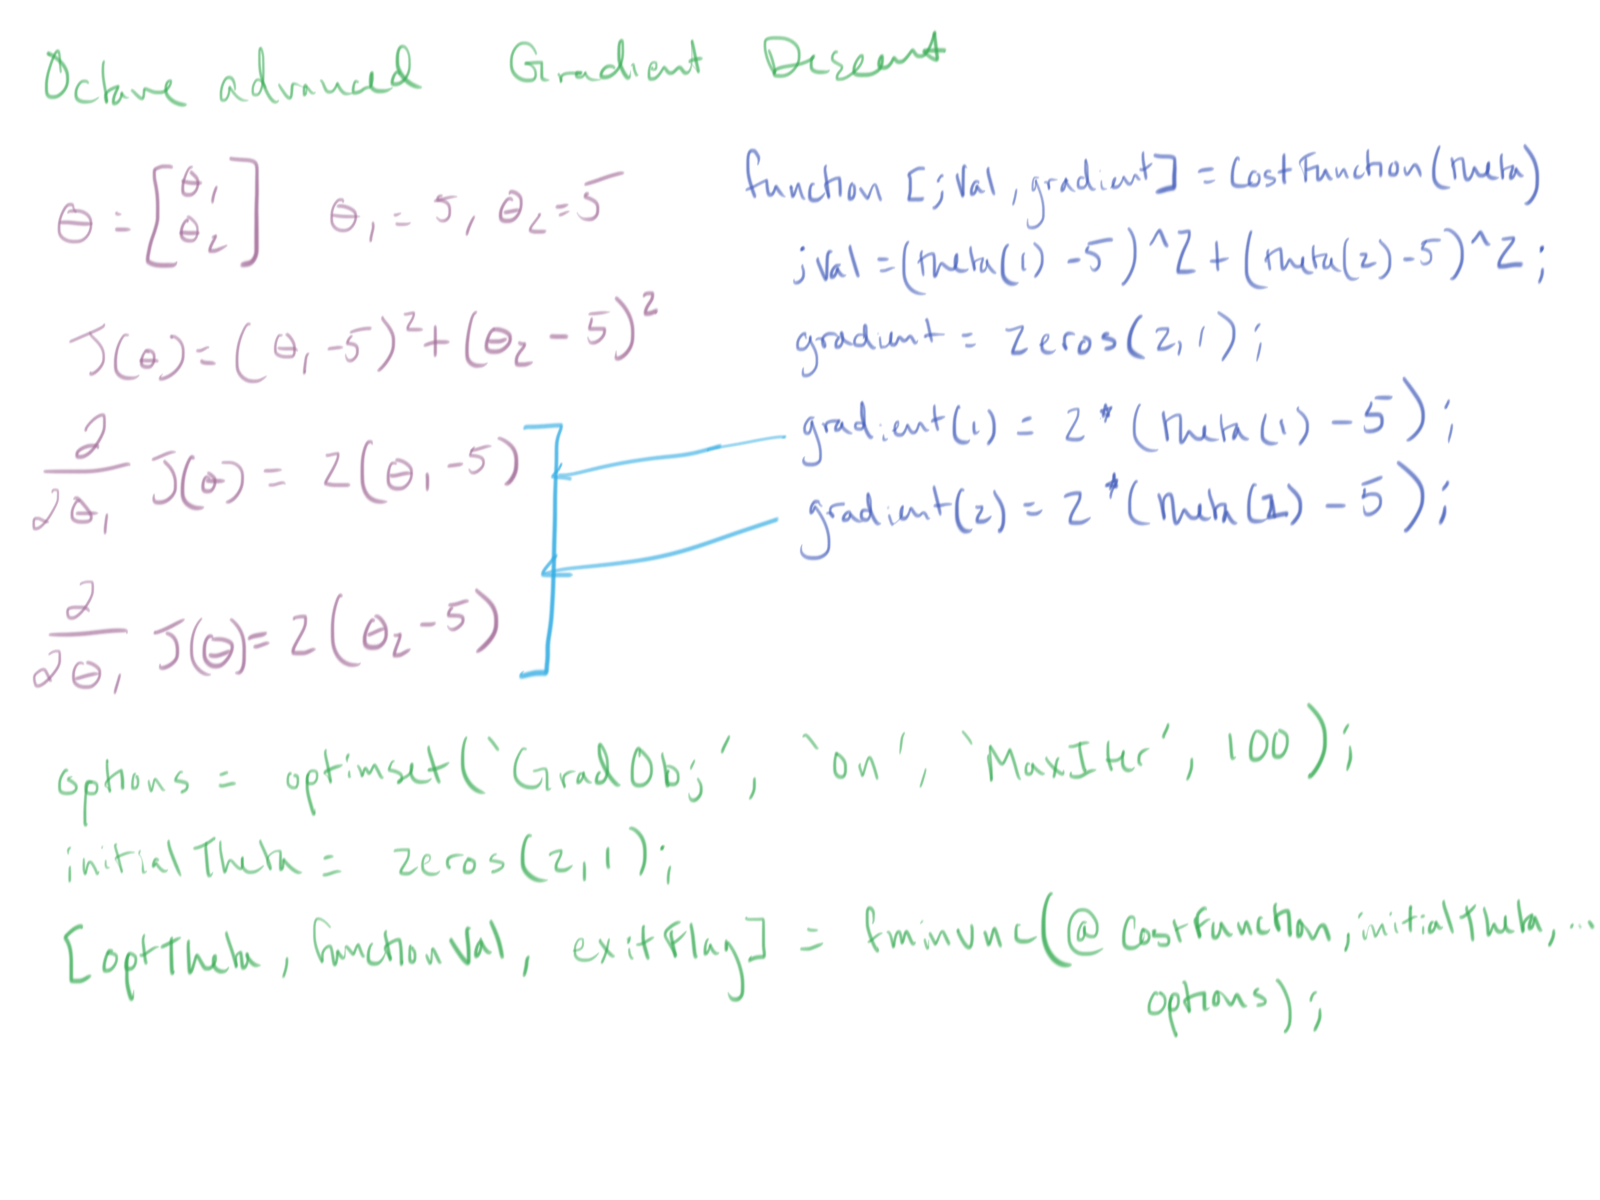 Octave advanced Gradient Descent
θ = [θ₁ θ₂] θ₁ = 5, θ₂ = 5
J(θ) = (θ₁ - 5)² + (θ₂ - 5)²
∂/∂θ₁ J(θ) = 2(θ₁ - 5)
∂/∂θ₁ J(θ) = 2(θ₂ - 5)
function [jVal, gradient] = CostFunction(theta)
jVal = (theta(1) - 5)^2 + (theta(2) - 5)^2;
gradient = zeros(2,1);
gradient(1) = 2*(theta(1) - 5);
gradient(2) = 2*(theta(2) - 5);
options = optimset(`GradObj', `on', `MaxIter', 100);
initialTheta = zeros(2,1);
[optTheta, functionVal, exitFlag] = fminunc(@CostFunction, initialTheta, ...
options);